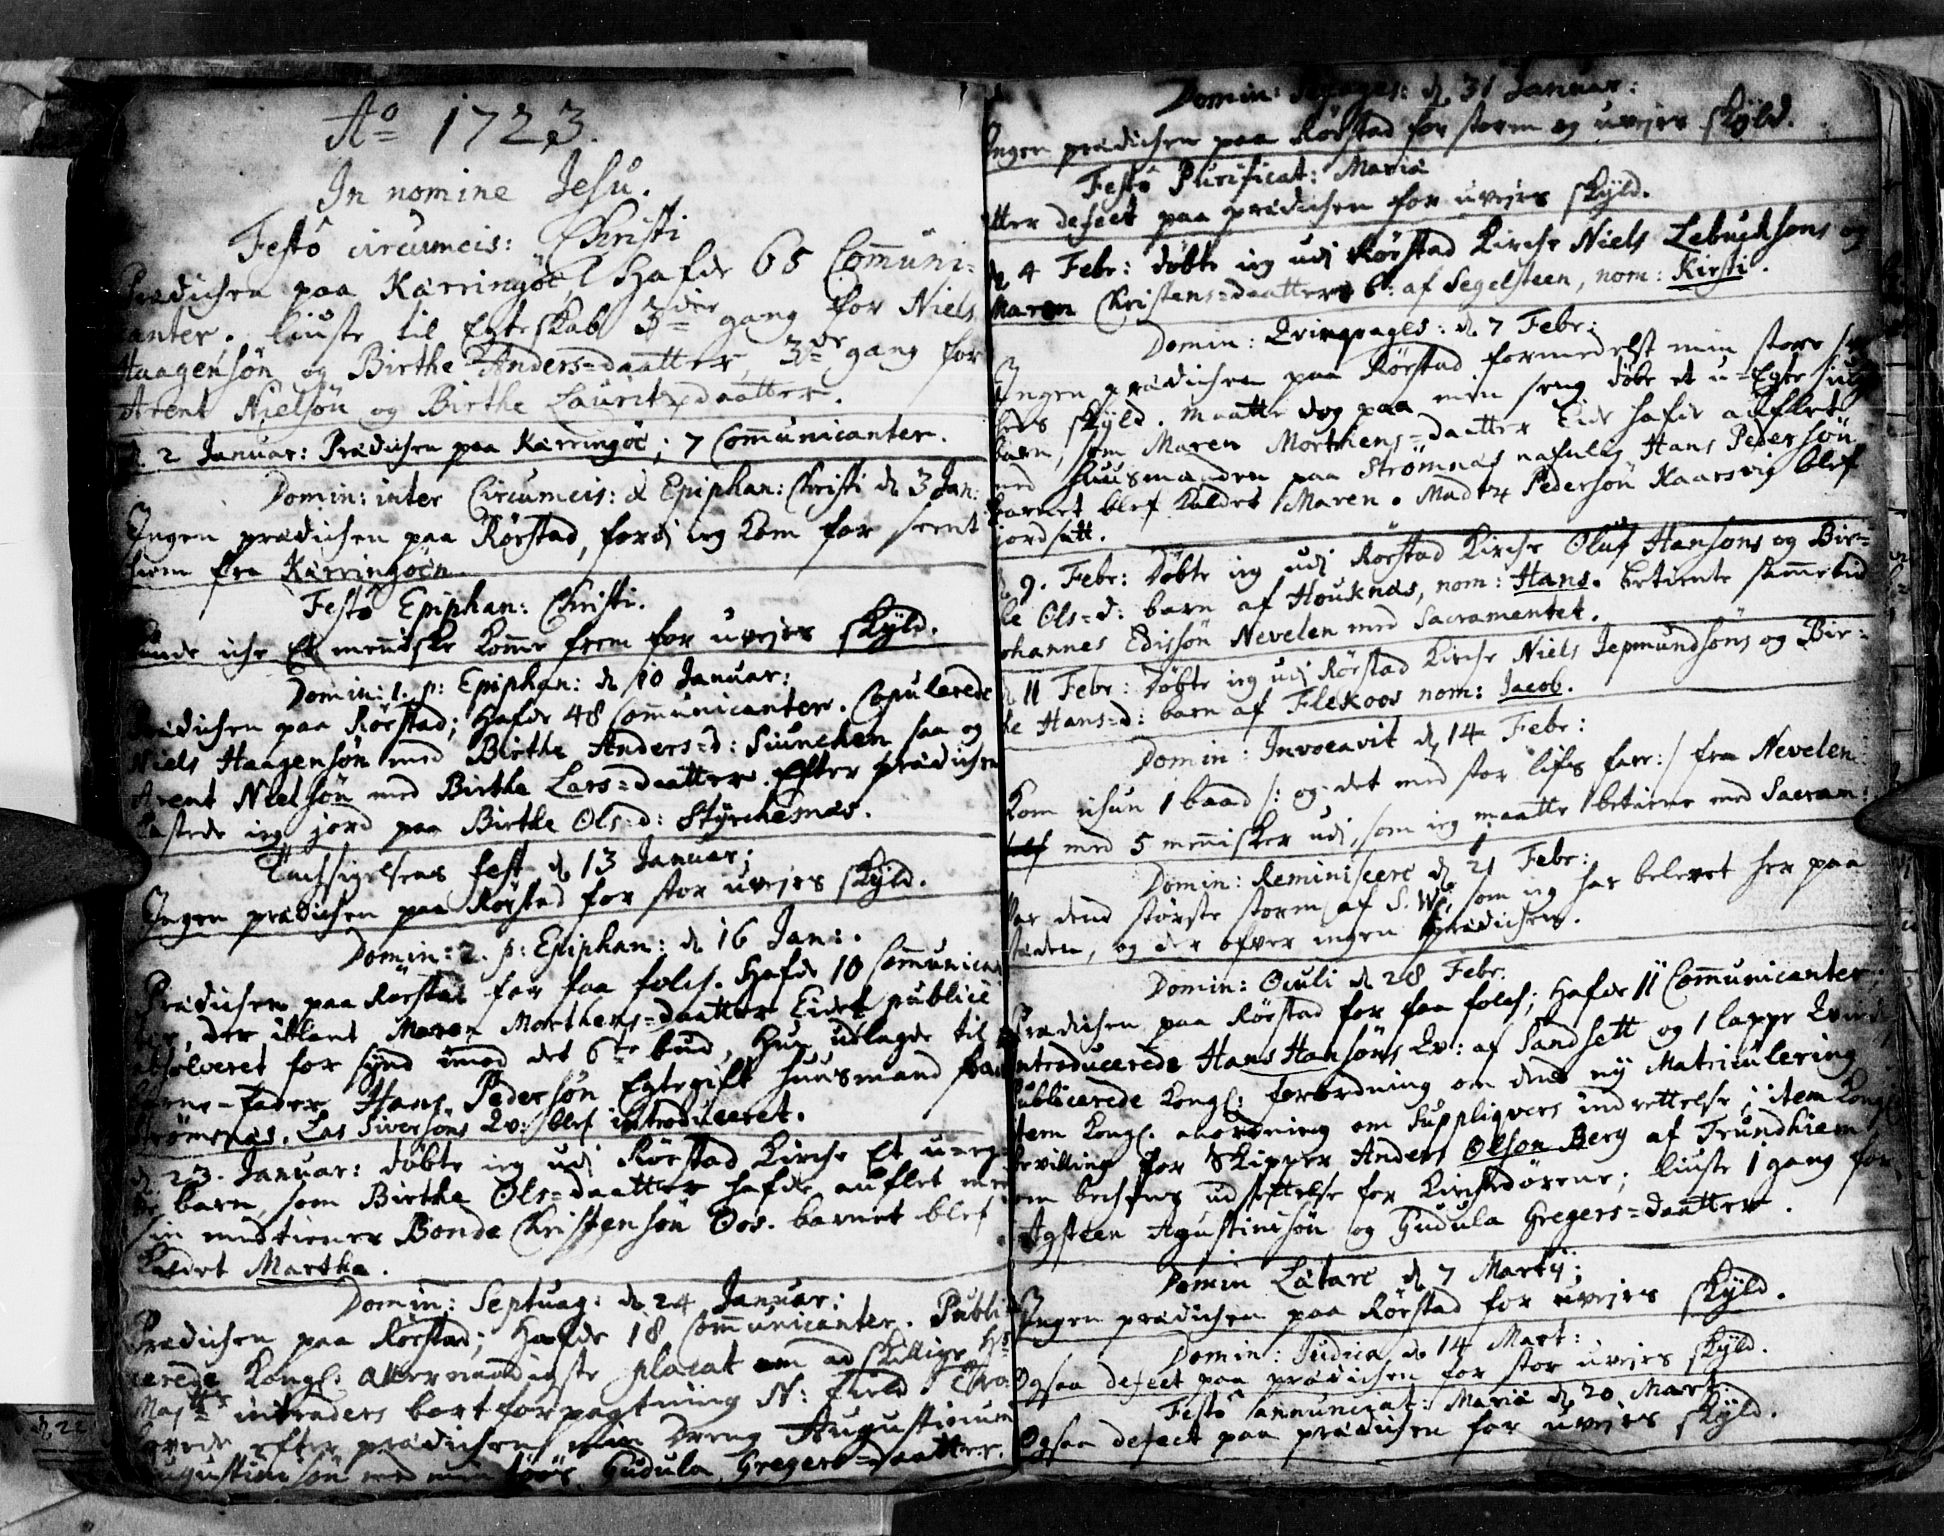 Aº 1723.
In nomine Jesu.
Festo circumcis: Christi
Prædichen paa Kærringöe, Hafde 65 Communi-
canter. liuste til Egteskab 3die gang for Niels
Haagensön og Birthe Anders=daatter, 3de gang for
Arent Nielsön og Birthe Lauritzdaatter.
d. 2 Januar: Prædichen paa Kærringöe; 7 Communicanter.
Domin: inter Circumcis: & Epiphan: Christi d. 3 Jan:
Ingen prædichen paa Rörstad, fordj ieg kom for seent
hiem fra Kærringöen.
Festo Epiphan: Christi.
Kunde iche Et menniske komme frem for uvejrs skÿld.
Domin: 1. p: Epiphan: d. 10 Januar:
Prædichen paa Rörstad; Hafde 48 Communicanter. Copulerede
Niels Haagensön med Birthe Anders=d: Siunchen saa og
Arent Nielsön med Birthe Lars=daatter. Efter prædichen
kastede ieg jord paa Birthe Ols=d: Styrchesnæs.
Tachsigelsens fest d. 13 Januar;
Ingen prædichen paa Rörstad for stor uvejrs skÿld.
Domin: 2. p: Epiphan: d. 16 Jan:
Prædichen paa Rörstad for faa folch. Hafde 10 Communican-
ter, der iblant Maren Morthens=daatter Eidet publicè
absolveret for synd imod det 6te bud, Hun udlagde til
barne-fader Hans Pedersön Egtegift huusmand paa
Strömsnæs. Las Siversöns Qv: blef introduceret.
d. 23. Januar: döbte ieg udj Rörstad Kirche Et uæg-
te barn, som Birthe Ols=daatter hafde auflet med
sin medtiener Bonde Christensön Oos. barnet blef
kaldet Martha.
Domin: Septuag: d. 24 Januar:
Prædichen paa Rörstad; Hafde 18 Communicanter. Publi-
cerede Kongl. allernaadigste placat om adskillige Hs
Majtts intraders bortforpagtning N: field. Tro-
lovede efter prædichen min Dreng Augustinum
Augustinusön med min töös Gudula Gregers=daatter.
Domin: Sexages: d. 31 Januar:
Ingen prædichen paa Rörstad for storm og uvejrs skÿld.
Festo Purificat: Mariæ
atter defect paa prædichen for uvejrs skÿld.
d. 4 Febr: döbte ieg udj Rörstad Kirche Niels Zebuchsöns og
Maren Christens=daatters b: af Segelsteen, nom: Kirsti.
Domin: Qvinqvages: d. 7 Febr:
Ingen prædichen paa Rörstad formedelst min store
heds skÿld. maatte dog paa min seng döbe et u=Egte
barn, som Maren Morthens=daatter Eide hafde auflet
med Huusmanden paa Strömnæs nafnlig Hans Pedersön
barnet blef kaldet Maren. Madtz Pedersön Kaarsvig blef
jordsatt.
d. 9. Febr: döbte ieg udj Rörstad Kirche Oluf Hansöns og Bir-
te Ols=d: barn af Houknæs, nom: Hans. betiente samme tid
Johannes Edissön Nevelen med Sacramentet.
d. 11 Febr: döbte ieg udj Rörstad Kirche Niels Jepmundsöns og Bir-
te Hans=d: barn af Flekoos nom: Jacob.
Domin: Invocavit d. 14 Febr:
Kom ichun 1 baad /: og det med stor lifs fare:/ fra Nevelen
med 5 mennisker udj, som ieg maatte betiene med Sacram:
Domin: Reminiscere d. 21 Febr:
Var dend störste storm af S.W. som ieg har belevet her paa
stæden, og der ofver ingen prædichen.
Domin: Oculi d. 28 Febr.
Prædichen paa Rörstad for faa folch; Hafde 11 Communicanter;
Introducerede Hans Hansöns Qv: af Sandsett og 1 lappe Qvinde
Publicerede Kongl: forordning om dend nÿ Matriculering
item Kongl. anordning om Suppliqvers indrettelse; item Kongl
bevilling for Skipper Anders Olsön Berg af Trundhiem
om bechens udsettelse for Kirchedörene; liuste 1 gang for
Agsteen Agustinusön og Gudula Gregers=daatter.
Domin Lætare d. 7 Martij;
Ingen prædichen paa Rörstad for uvejrs skÿld.
Domin: Judica d. 14 Mart:
Ogsaa defect paa prædichen for stor uvejrs skÿld.
Festo annunciat: Mariæ d. 20 Mart:
Ogsaa defect paa prædichen for uvejrs skÿld.